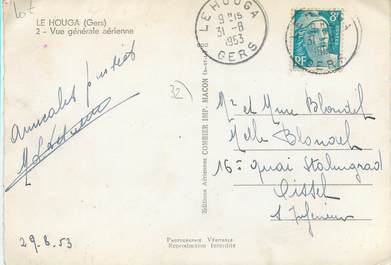 LE HOUGA (Gers)
2 - Vue générale aérienne
LE HOUGA
9 H 15
31 - 8
1953
GERS
8F
RF
GERS
Amicales
29.8.53
Editions Aériennes COMBIER IMP. MACON
Mr et Mme Blondel
Melle Blondel
16 quai Stalingrad
Oissel
S Inférieure
PHOTOGRAPHIE VÉRITABLE
Reproduction Interdite